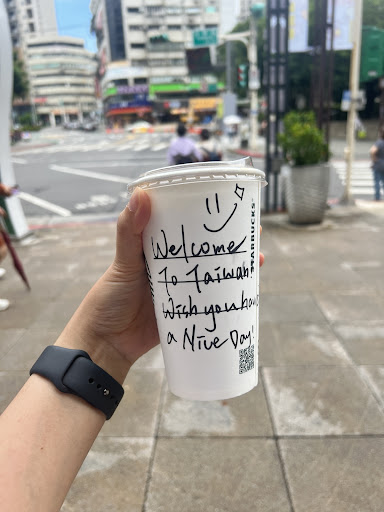 Welcome
To Taiwan!
Wish you have
a Nive Day!
STARBUCKS